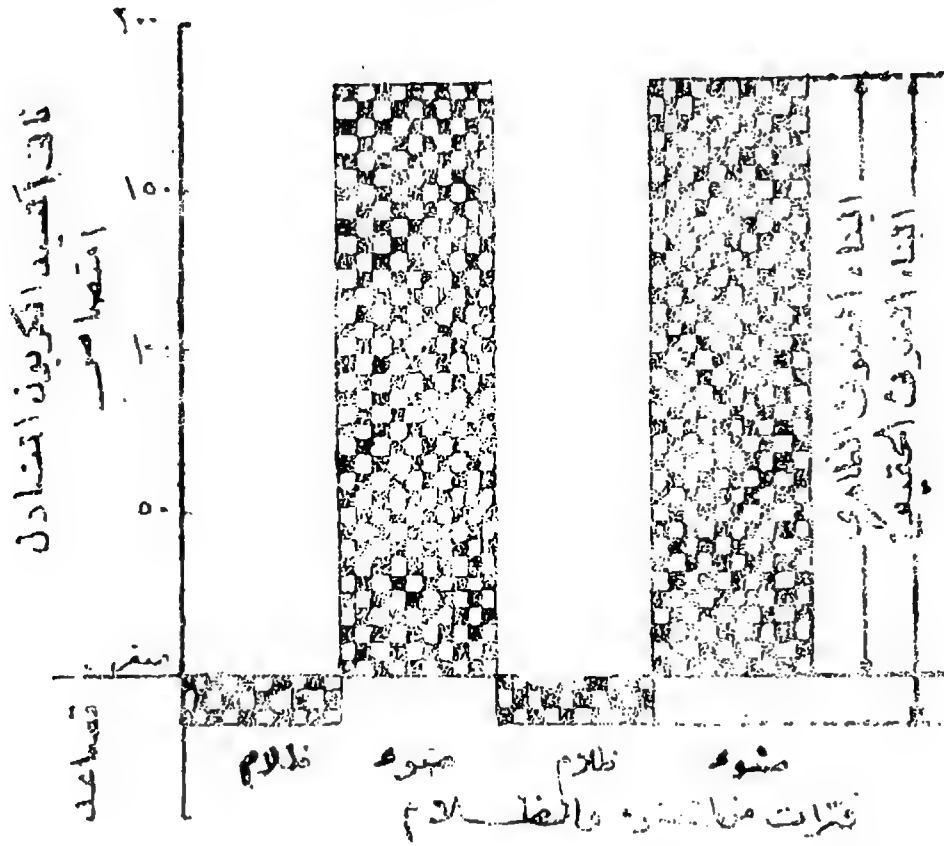 ٢٠٠
١٥٠
١٠٠
٥٠
صفر
ثانى أكسيد الكربون المتبادل
امتصاص
متصاعد
ظلام
ضوء
ظلام
ضوء
فترات من الضوء والظلام
البناء الضوئى الظاهرى
البناء الضوئى الحقيقى